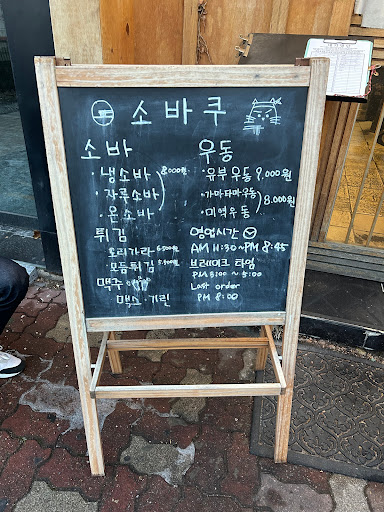 소바쿠
소바
· 냉소바 8,000원
· 자루소바
· 온소바
튀김
· 도리가라 6,500원
· 모듬튀김
맥주
맥스 · 기린
우동
· 유부우동 9,000원
· 가마타마우동
8,000원
· 미역우동
영업시간
AM 11:30~PM 8:45
브레이크 타임
PM 3:00 ~ 5:00
Last order
PM 8:00